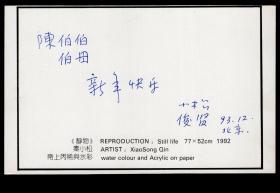 陳伯伯
伯母
新年快乐
小松
俊贤 93.12.
北京.
《静物》 REPRODUCTION : Still life 77×52cm 1992
秦小松 ARTIST : XiaoSong Qin
紙上丙烯與水彩 water colour and Acrylic on paper